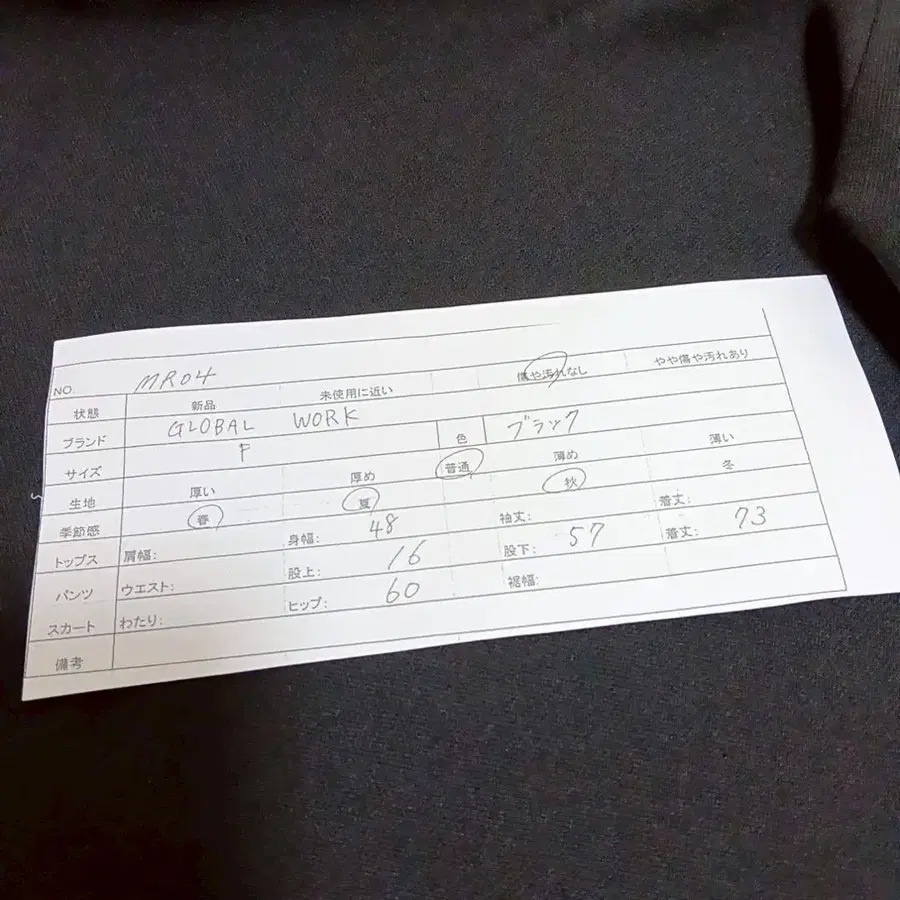 NO. MR04
状態 新品 未使用に近い 傷や汚れなし やや傷や汚れあり
ブランド GLOBAL WORK 色 ブラック
サイズ F
生地 厚い 厚め 普通 薄め 薄い
季節感 春 夏 秋 冬
トップス 肩幅: 身幅: 48 袖丈: 着丈:
パンツ ウエスト: 股上: 16 股下: 57 着丈: 73
スカート わたり: ヒップ: 60 裾幅:
備考